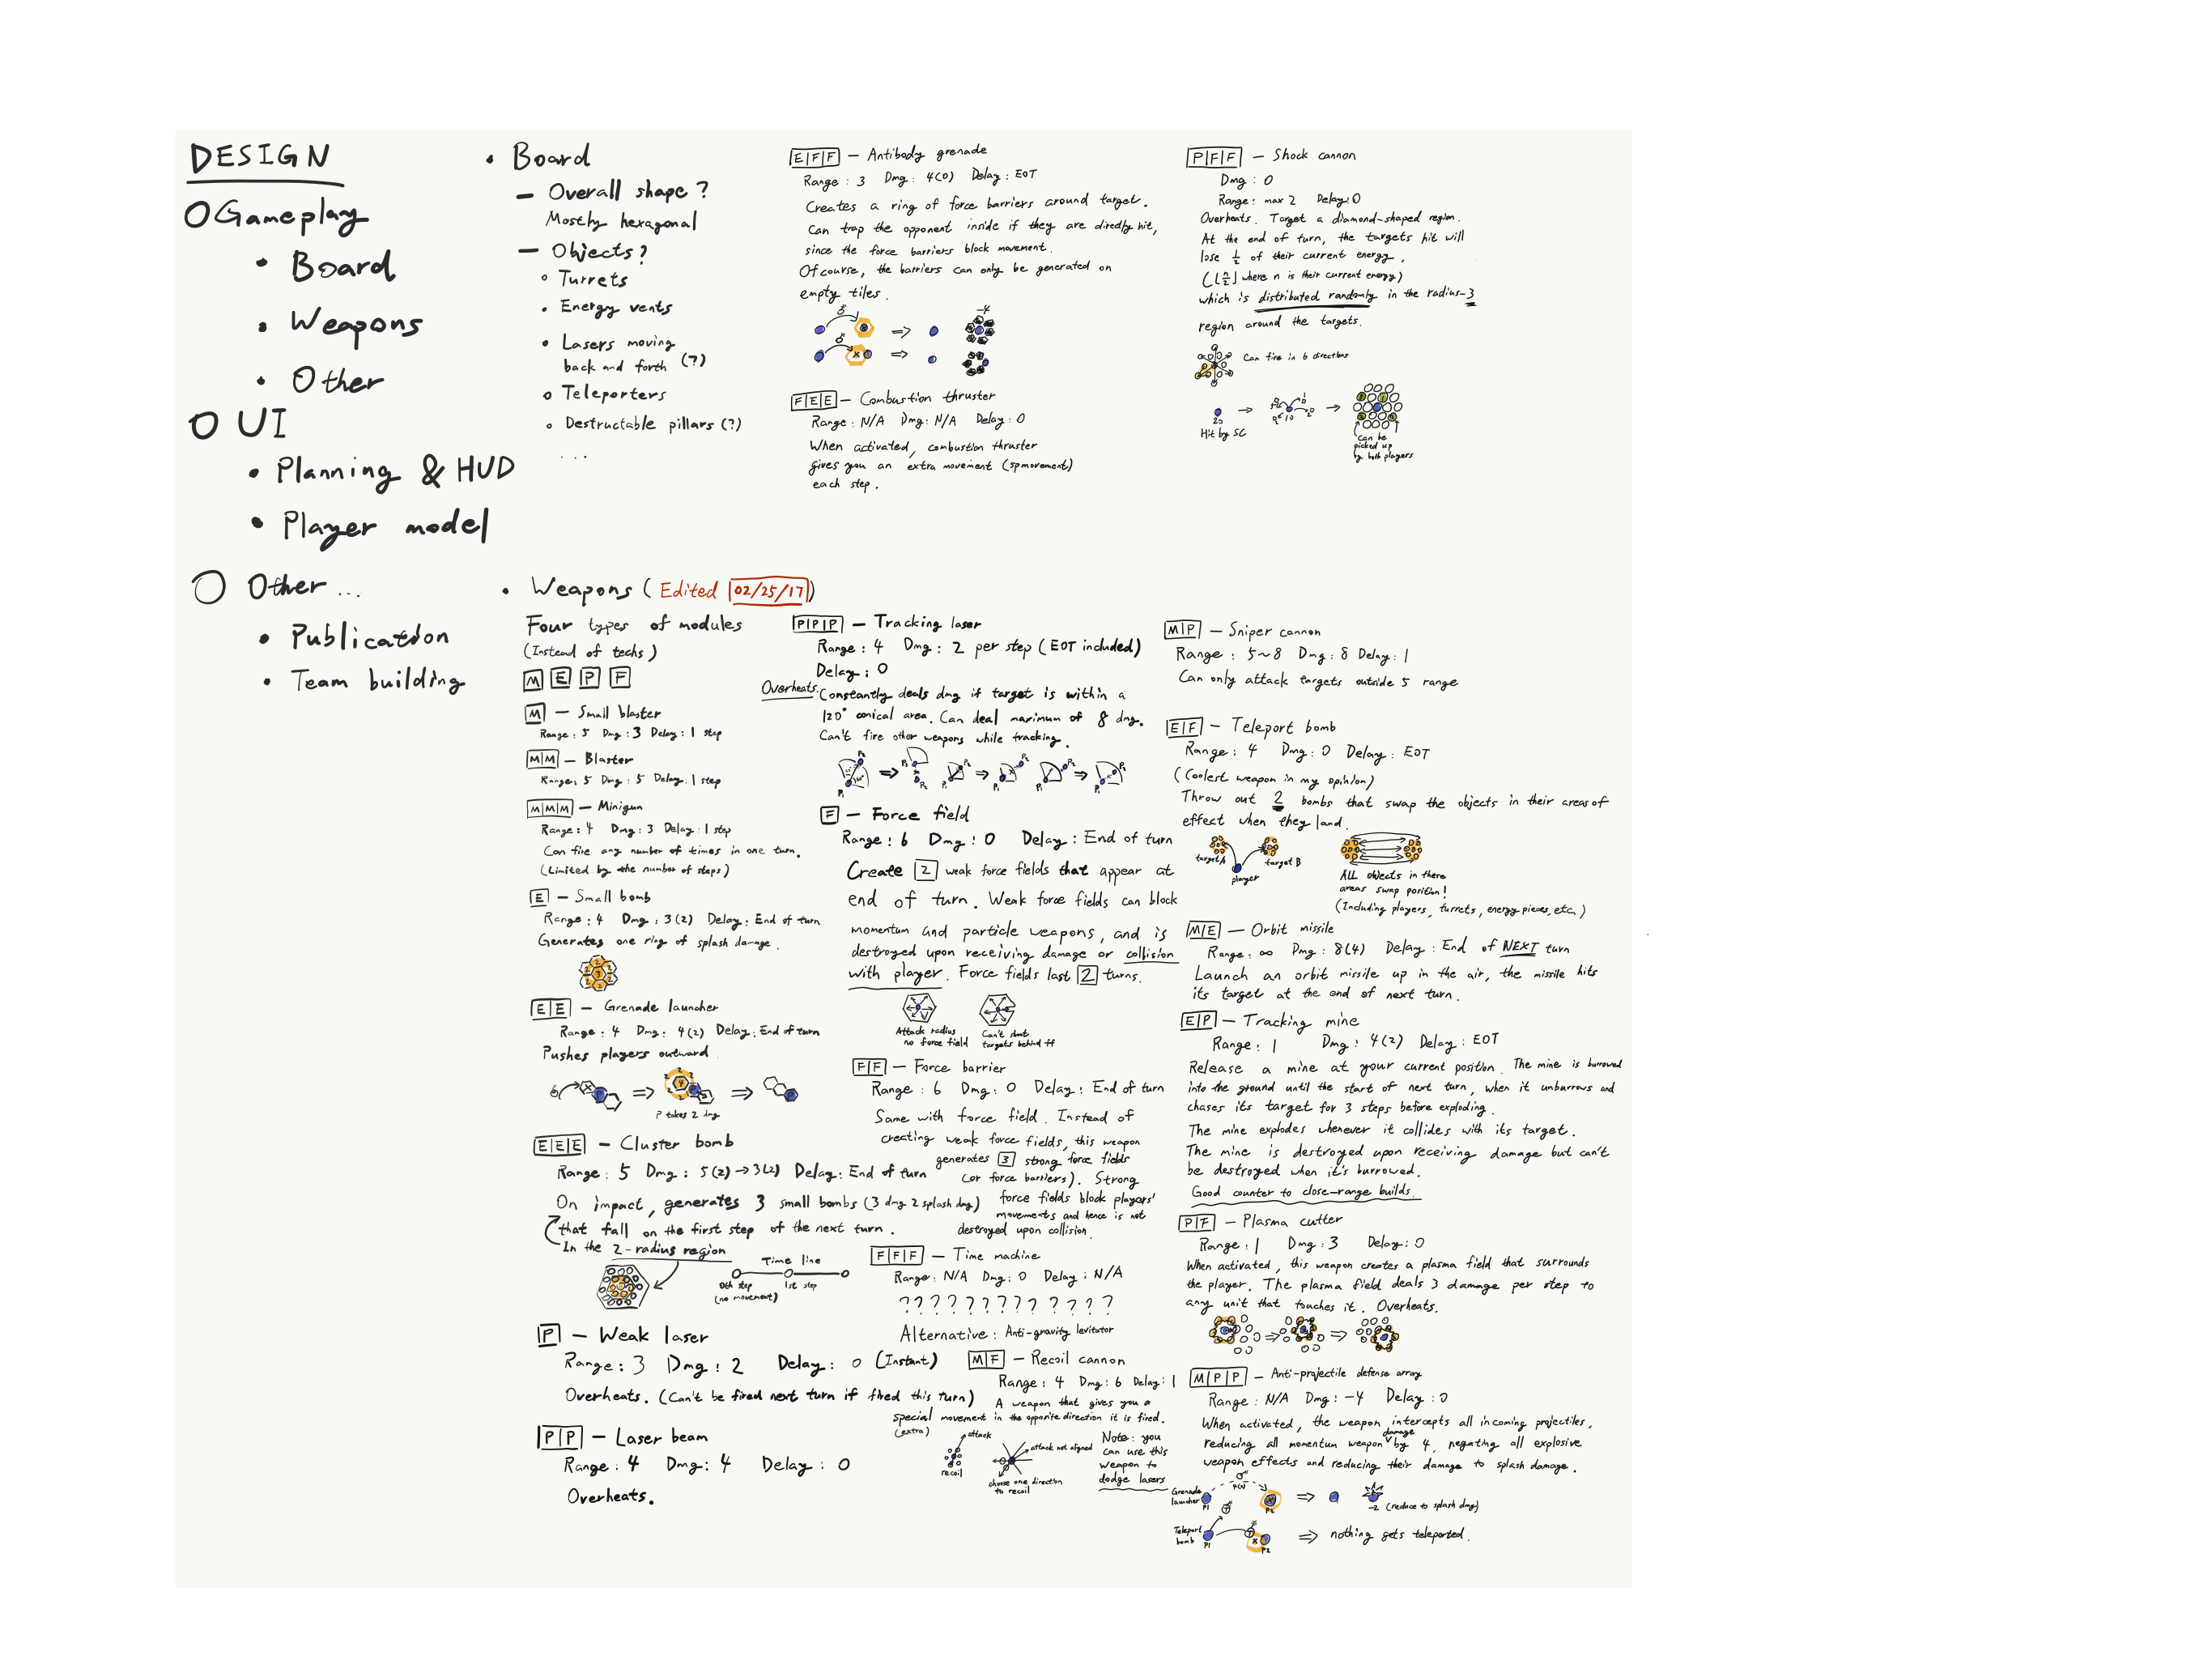 DESIGN
Gameplay
• Board
• Weapons
• Other
UI
• Planning & HUD
• Player model
Other ...
• Publication
• Team building
• Board
— Overall shape?
Mostly hexagonal
— Objects?
Turrets
Energy vents
Lasers moving
back and forth (?)
Teleporters
Destructable pillars (?)
...
E|F|F — Antibody grenade
Range : 3 Dmg : 4(0) Delay : EOT
Creates a ring of force barriers around target.
Can trap the opponent inside if they are directly hit,
since the force barriers block movement.
Of course, the barriers can only be generated on
empty tiles.
-4
F|E|E — Combustion thruster
Range : N/A Dmg : N/A Delay : 0
When activated, combustion thruster
gives you an extra movement (sp movement)
each step.
P|F|F — Shock cannon
Dmg : 0
Range : max 2 Delay : 0
Overheats. Target a diamond-shaped region.
At the end of turn, the targets hit will
lose 1/2 of their current energy.
(⌊n/2⌋ where n is their current energy)
which is distributed randomly in the radius-3
region around the targets.
Can fire in 6 directions
20
Hit by SC
10
Can be
picked up
by both players
• Weapons (Edited 02/25/17)
Four types of modules
(Instead of techs)
M E P F
M — Small blaster
Range : 5 Dmg : 3 Delay : 1 step
M|M — Blaster
Range : 5 Dmg : 5 Delay : 1 step
M|M|M — Minigun
Range : 4 Dmg : 3 Delay : 1 step
Can fire any number of times in one turn.
(Limited by the number of steps)
E — Small bomb
Range : 4 Dmg : 3(2) Delay : End of turn
Generates one ring of splash damage.
E|E — Grenade launcher
Range : 4 Dmg : 4(2) Delay : End of turn
Pushes players outward
P takes 2 dmg
E|E|E — Cluster bomb
Range : 5 Dmg : 5(2)→3(2) Delay : End of turn
On impact, generates 3 small bombs (3 dmg 2 splash dmg)
that fall on the first step of the next turn.
In the 2-radius region
Time line
0th step
(no movement)
1st step
P — Weak laser
Range : 3 Dmg : 2 Delay : 0 (Instant)
Overheats. (Can't be fired next turn if fired this turn)
P|P — Laser beam
Range : 4 Dmg : 4 Delay : 0
Overheats.
P|P|P — Tracking laser
Range : 4 Dmg : 2 per step (EOT included)
Delay : 0
Overheats. Constantly deals dmg if target is within a
120° conical area. Can deal maximum of 8 dmg.
Can't fire other weapons while tracking.
F — Force field
Range : 6 Dmg : 0 Delay : End of turn
Create 2 weak force fields that appear at
end of turn. Weak force fields can block
momentum and particle weapons, and is
destroyed upon receiving damage or collision
with player. Force fields last 2 turns.
Attack radius
no force field
Can't shoot
targets behind ff
F|F — Force barrier
Range : 6 Dmg : 0 Delay : End of turn
Same with force field. Instead of
creating weak force fields, this weapon
generates 3 strong force fields
(or force barriers). Strong
force fields block players'
movements and hence is not
destroyed upon collision.
F|F|F — Time machine
Range : N/A Dmg : 0 Delay : N/A
? ? ? ? ? ? ? ? ? ? ? ? ?
Alternative : Anti-gravity levitator
M|F — Recoil cannon
Range : 4 Dmg : 6 Delay : 1
A weapon that gives you a
special movement in the opposite direction it is fired.
(extra)
attack
recoil
attack not aligned
choose one direction
to recoil
Note : you
can use this
weapon to
dodge lasers
M|P — Sniper cannon
Range : 5~8 Dmg : 8 Delay : 1
Can only attack targets outside 5 range
E|F — Teleport bomb
Range : 4 Dmg : 0 Delay : EOT
(Coolest weapon in my opinion)
Throw out 2 bombs that swap the objects in their areas of
effect when they land.
target A
player
target B
ALL objects in there
areas swap position!
(Including players, turrets, energy pieces, etc.)
M|E — Orbit missile
Range : ∞ Dmg : 8(4) Delay : End of NEXT turn
Launch an orbit missile up in the air, the missile hits
its target at the end of next turn.
E|P — Tracking mine
Range : 1 Dmg : 4(2) Delay : EOT
Release a mine at your current position. The mine is burrowed
into the ground until the start of next turn, when it unburrows and
chases its target for 3 steps before exploding.
The mine explodes whenever it collides with its target.
The mine is destroyed upon receiving damage but can't
be destroyed when it's burrowed.
Good counter to close-range builds.
P|F — Plasma cutter
Range : 1 Dmg : 3 Delay : 0
When activated, this weapon creates a plasma field that surrounds
the player. The plasma field deals 3 damage per step to
any unit that touches it. Overheats.
M|P|P — Anti-projectile defense array
Range : N/A Dmg : -4 Delay : 0
When activated, the weapon intercepts all incoming projectiles,
reducing all momentum weapon damage by 4, negating all explosive
weapon effects and reducing their damage to splash damage.
Grenade
launcher
P1
P2
-2 (reduce to splash dmg)
Teleport
bomb
P1
P2
nothing gets teleported.